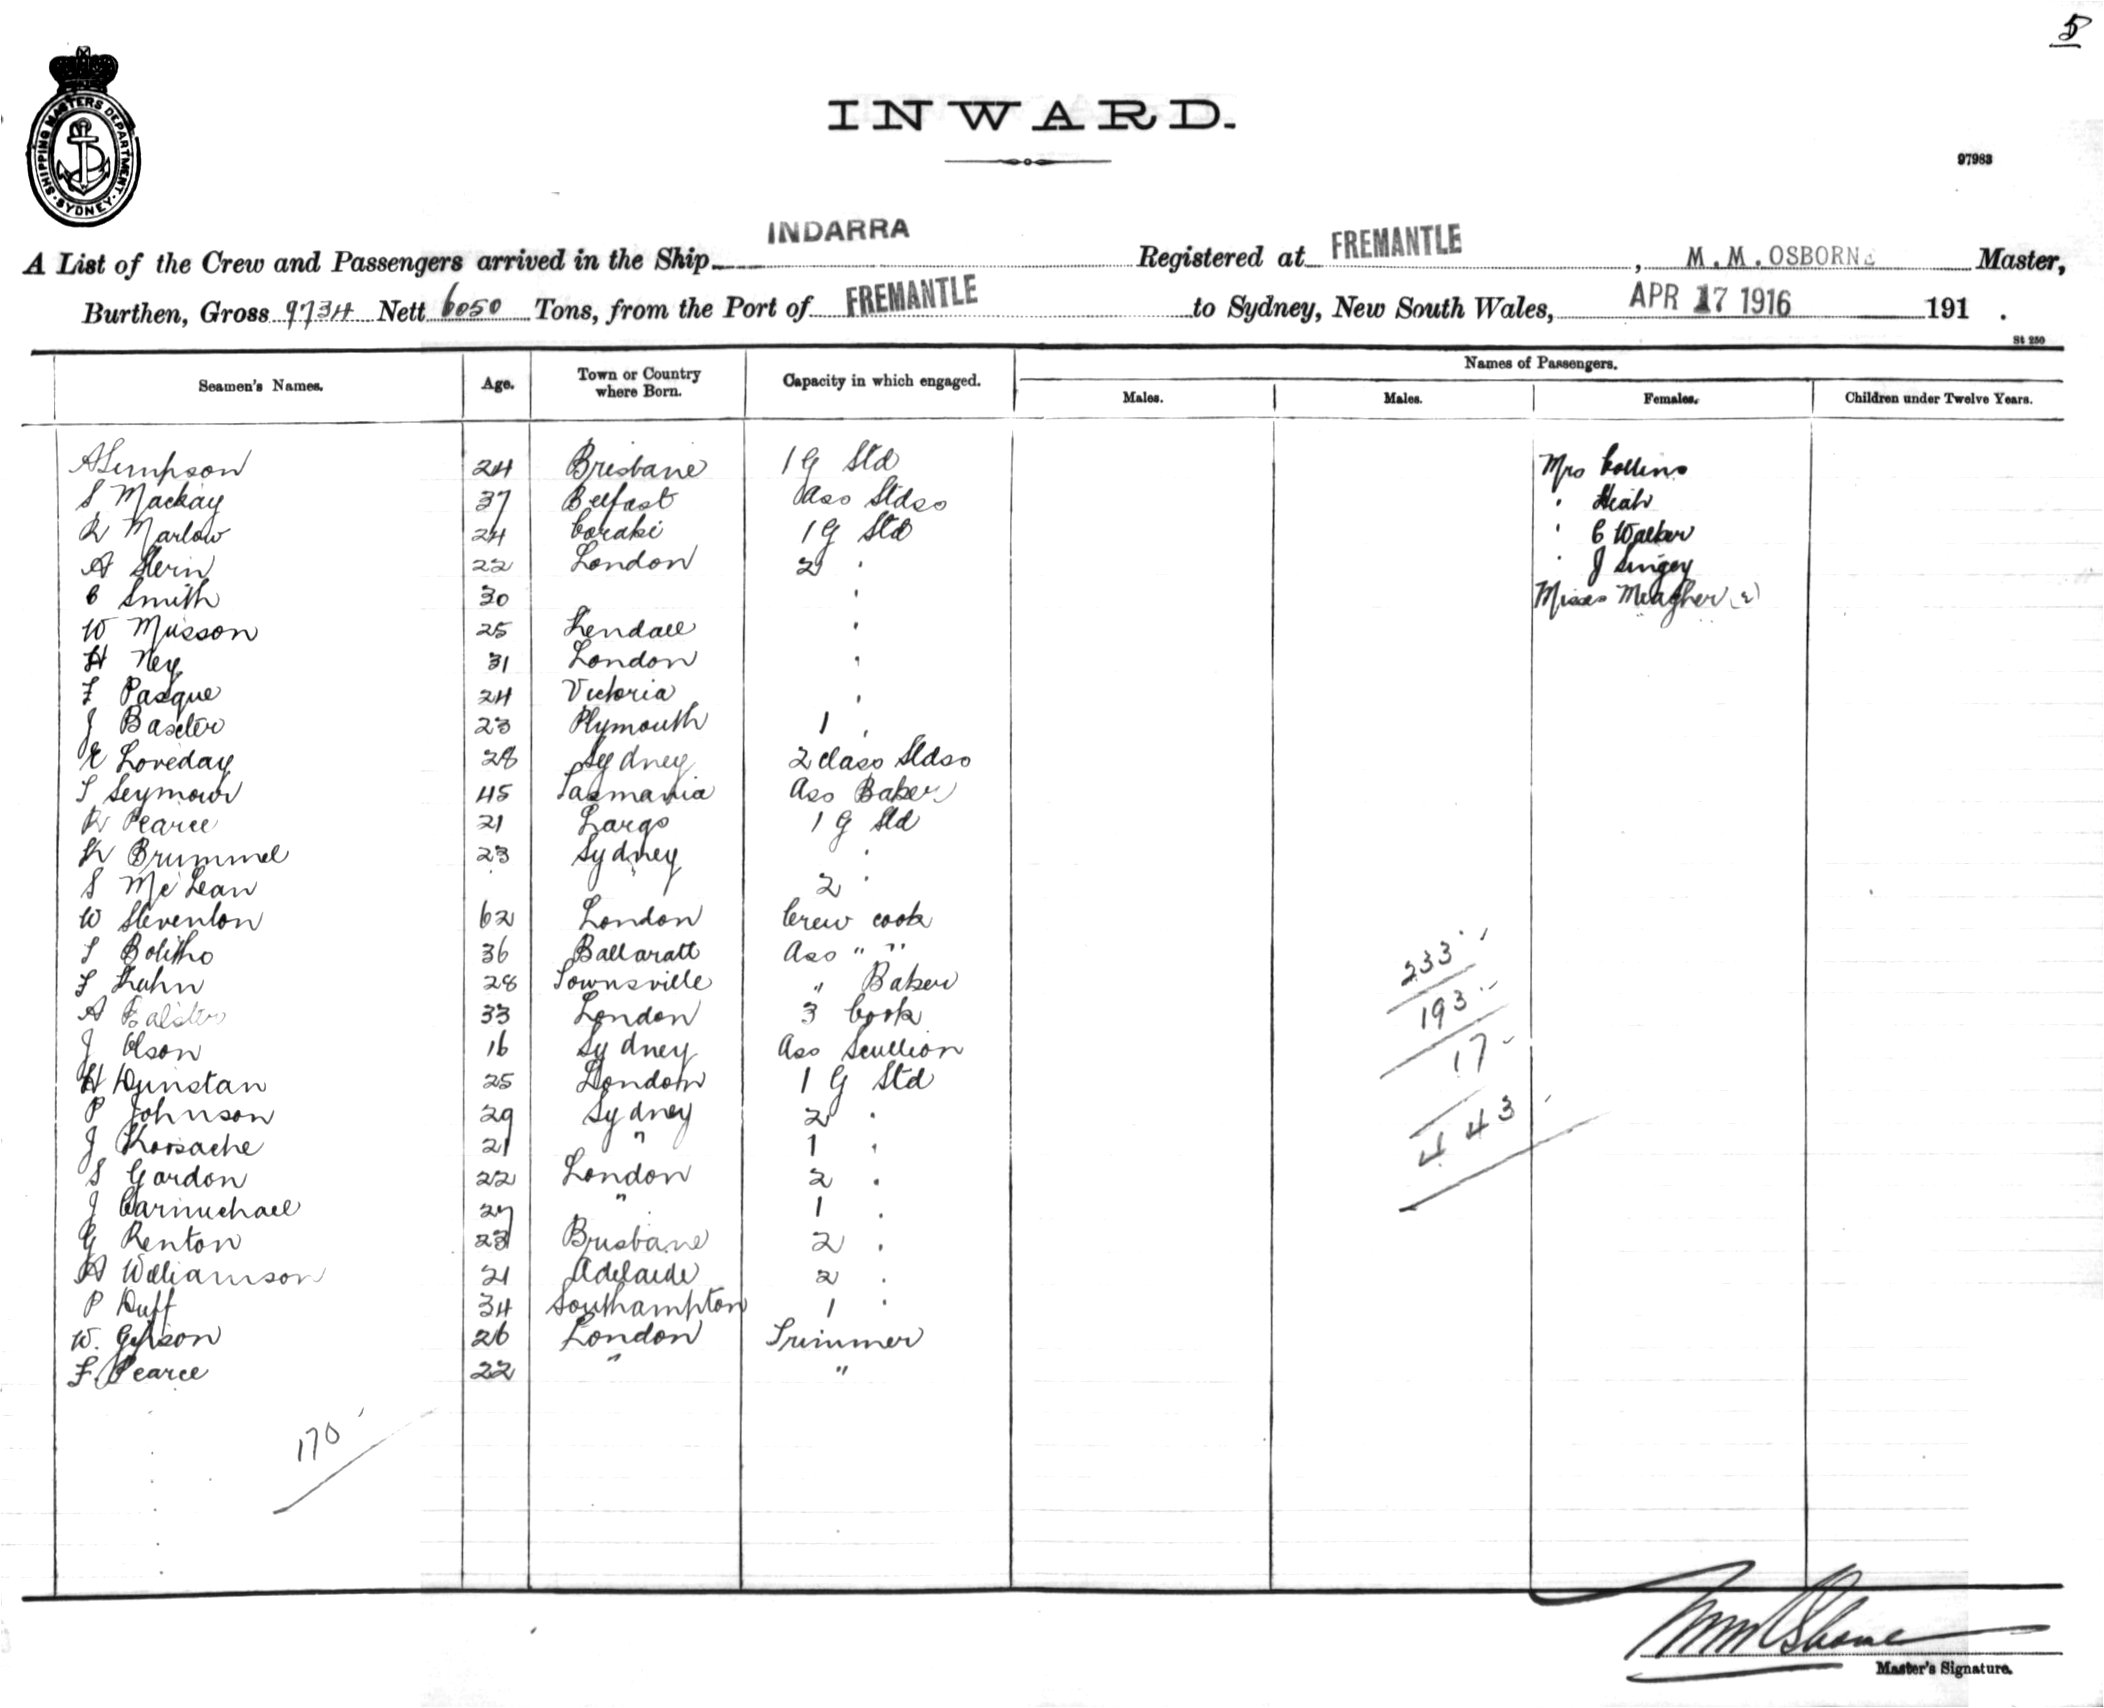 5
SHIPPING MASTERS DEPARTMENT
SYDNEY
INWARD.
97983
A List of the Crew and Passengers arrived in the Ship INDARRA Registered at FREMANTLE, M.M. OSBORNE Master,
Burthen, Gross 9734 Nett 6050 Tons, from the Port of FREMANTLE to Sydney, New South Wales, APR 17 1916 191 .
St 250
Seamen's Names. Age. Town or Country where Born. Capacity in which engaged. Names of Passengers.
Males. Males. Females. Children under Twelve Years.
A Simpson 24 Brisbane 1 G Std Mrs Collins
S Mackay 37 Belfast Ass Stdss "
R Marlow 24 Coraki 1 G Std " C Walker
A Stern 22 London 2 " " J Singey
C Smith 30 " Misses Meagher (2)
W Musson 25 Kendall "
H Ney 31 London "
F Pasque 24 Victoria "
J Baxter 23 Plymouth 1 "
E Loveday 28 Sydney 2 class Stdss
T Seymour 45 Tasmania Ass Baker
R Pearce 21 Largs 1 G Std
K Brummel 23 Sydney "
S McLean " " 2 "
W Steventon 62 London Crew cook
T Bolitho 36 Ballaratt Ass " "
F Kuhn 28 Townsville " Baker
A 33 London 3 Cook
J Olson 16 Sydney Ass Scullion
H Dunstan 25 London 1 G Std
P Johnson 29 Sydney 2 "
J 21 " 1 "
S Gordon 22 London 2 "
J Carmichael 27 " 1 "
G Renton 23 Brisbane 2 "
A Williamson 21 Adelaide 2 "
P Duff 34 Southampton 1 "
W. Gibson 26 London Trimmer
F. Pearce 22 " "
233
193
17
443
170
MM Osborne
Master's Signature.